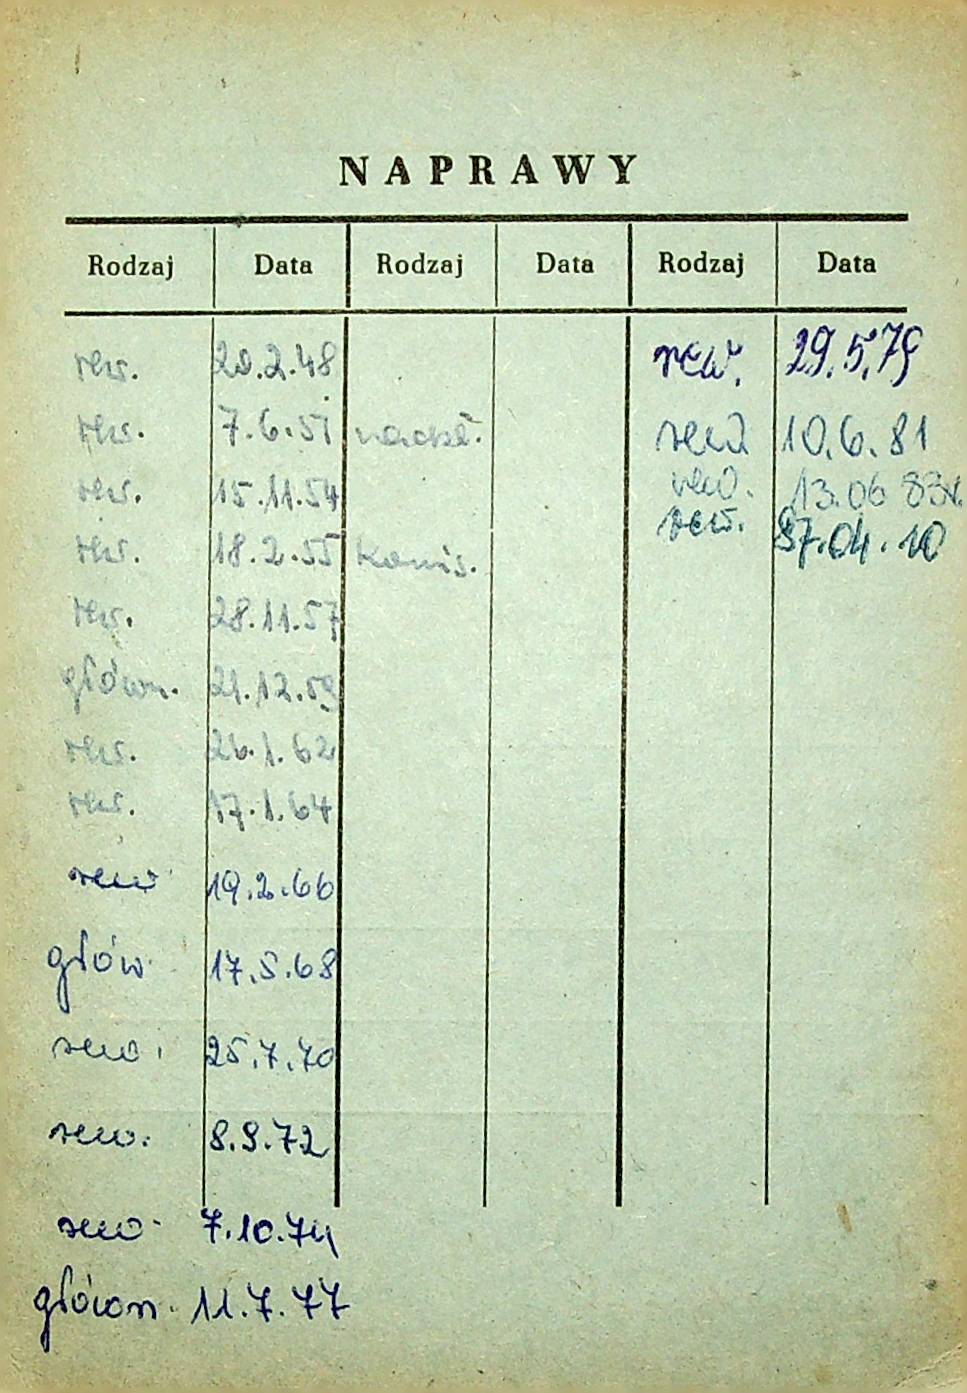 NAPRAWY
Rodzaj Data Rodzaj Data Rodzaj Data
rew. 20.2.48 rew. 29.5.79
rew. 7.6.51 nadzł. rew 10.6.81
rew. 15.11.54 rew. 13.06 83r.
rew. 18.2.55 komis. rew. 87.04.10
rew. 28.11.57
główn. 21.12.59
rew. 26.1.62
rew. 17.1.64
rew 19.2.66
głów. 17.5.68
rew. 25.7.70
rew. 8.9.72
rew. 7.10.74
główn. 11.7.77